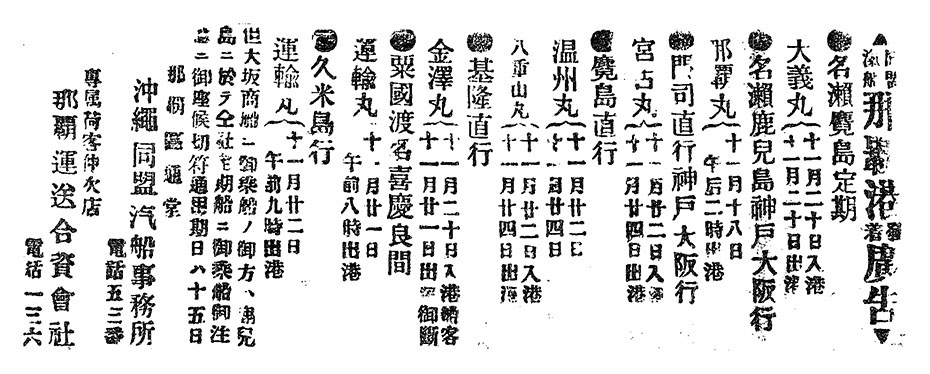 ▲同盟汽船那覇港發着廣告▼
●名瀬麑島定期
大義丸(十一月二十日入港
十一月二十日出港
●名瀬鹿兒島神戸大阪行
那覇丸(十一月十八日
午后二時出港
●門司直行神戸大阪行
宮古丸(十一月廿二日入港
十一月廿四日出港
●麑島直行
温州丸(十一月廿二日
十一月廿四日
八重山丸(十一月廿二日入港
十一月廿四日出港
●基隆直行
金澤丸(十一月二十日入港船客
十一月廿一日出港御斷
●粟國渡名喜慶良間
運輸丸 十一月廿一日
午前八時出港
●久米島行
運輸丸(十一月廿二日
午前九時出港
但大坂商船ニ御乘船ノ御方、鹿兒
島ニ於テ仝社定期船ニ御乘船御注
意ニ御座候切符通用期日ハ十五日
那覇區通堂
沖繩同盟汽船事務所
電話五三番
専属荷客仲次店
那覇運送合資會社
電話一三六